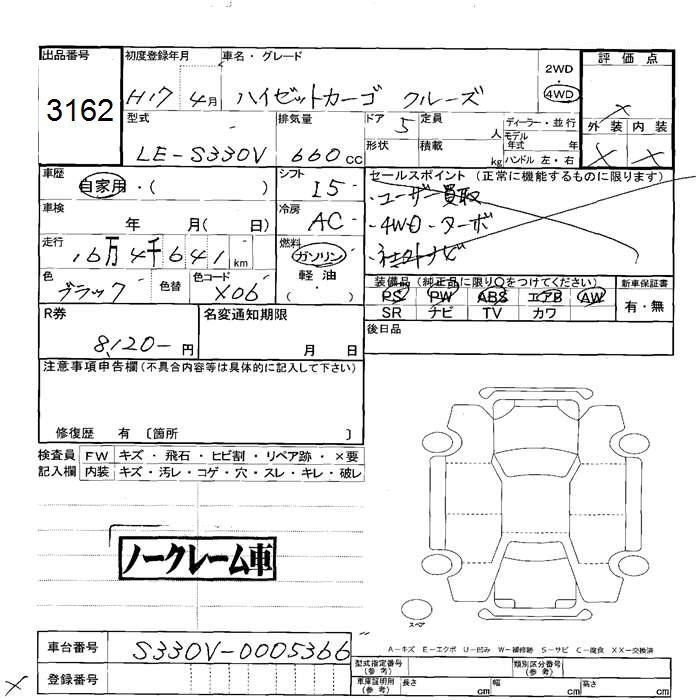 出品番号 初度登録年月 車名・グレード 2WD ・ 4WD 評価点
3162 H17 4月 ハイゼットカーゴ クルーズ
型式 排気量 ドア 5 定員 人 ディーラー・並行 外装 内装
LE-S330V 660cc 形状 積載 kg モデル年式 年 × ×
ハンドル 左・右
車歴 自家用・( ) シフト I5 セールスポイント (正常に機能するものに限ります)
・ユーザー買取
車検 年 月( 日) 冷房 AC ・4WD・ターボ
走行 16万4千641km 燃料 ガソリン 軽油 ( )
色 ブラック 色替 色コード X06 装備品 (純正品に限り○をつけてください) 新車保証書
PS PW ABS エアB AW 有・無
SR ナビ TV カワ
R券 8,120-円 名変通知期限 月 日 後日品
注意事項申告欄(不具合内容等は具体的に記入して下さい)
修復歴 有 〔箇所 〕
検査員 FW キズ・飛石・ヒビ割・リペア跡・×要
記入欄 内装 キズ・汚レ・コゲ・穴・スレ・キレ・破レ
ノークレーム車
スペア
車台番号 S330V-0005366 A-キズ E-エクボ U-凹み W-補修跡 S-サビ C-腐食 XX-交換済
登録番号 型式指定番号(参考) 類別区分番号(参考)
× 車庫証明用(参考) 長さ cm 幅 cm 高さ cm